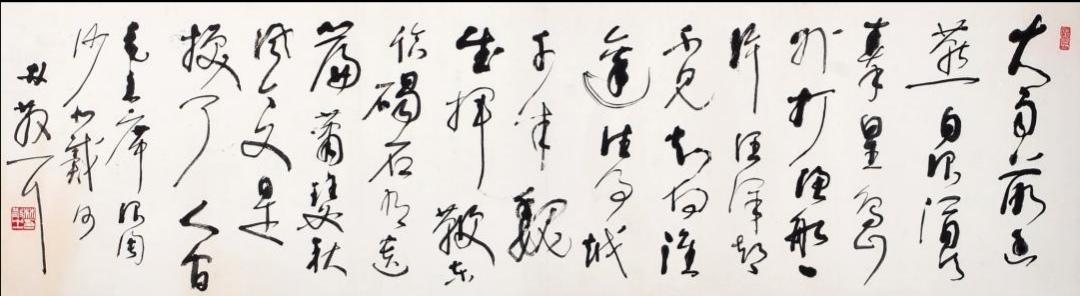 大雨落幽
燕白浪滔天
秦皇岛
外打渔船一
片汪洋都
不见知向谁
边往事越
千年魏
武挥鞭东
临碣石有遗
篇萧瑟秋
风今又是
换了人间
毛主席浪淘
沙北戴河
林散耳